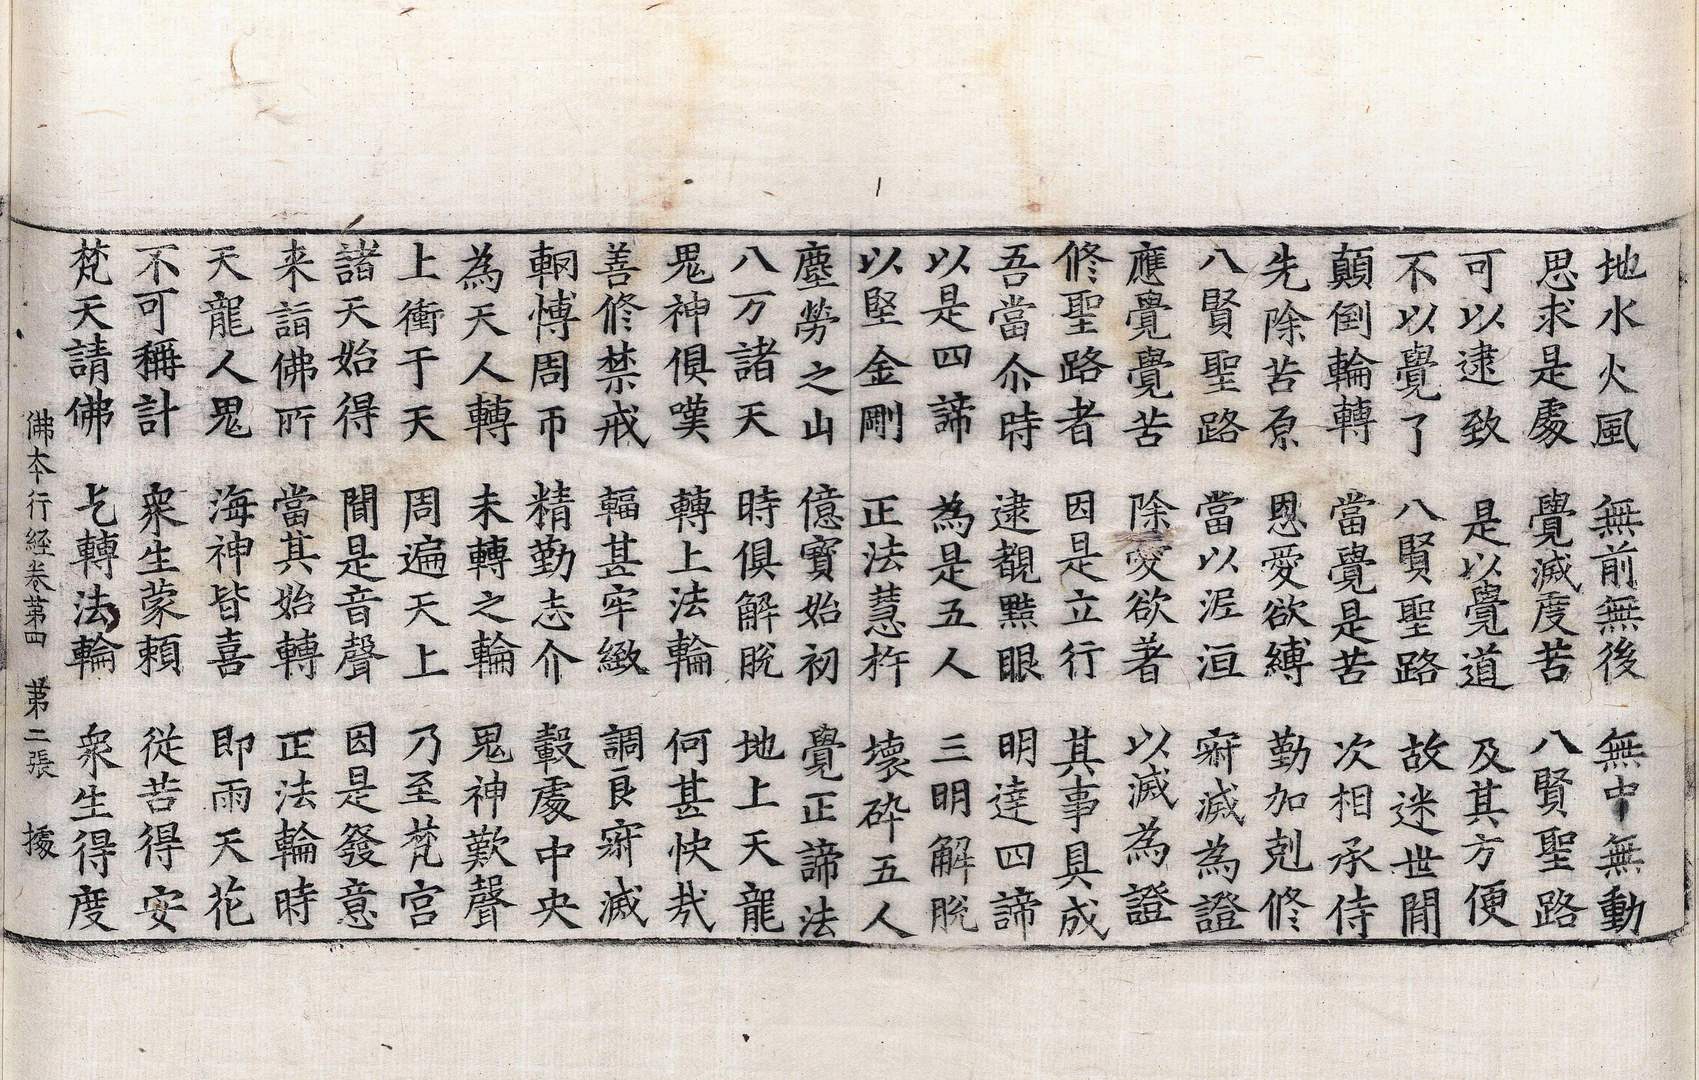 地水火風 無前無後 無中無動
思求是處 覺滅度苦 八賢聖路
可以逮致 是以覺道 及其方便
不以覺了 八賢聖路 故迷世閒
顛倒輪轉 當覺是苦 次相承侍
先除苦原 恩愛欲縛 勤加剋修
八賢聖路 當以泥洹 寂滅為證
應覺覺苦 除愛欲著 以滅為證
修聖路者 因是立行 其事具成
吾當尒時 逮覩黠眼 明達四諦
以是四諦 為是五人 三明解脫
以堅金剛 正法慧杵 壞碎五人
塵勞之山 億寶始初 覺正諦法
八万諸天 時俱解脫 地上天龍
鬼神俱嘆 轉上法輪 何甚快哉
善修禁戒 輻甚牢緻 調良寂滅
輞愽周帀 精勤志介 轂處中央
為天人轉 未轉之輪 鬼神歎聲
上衝于天 周遍天上 乃至梵宮
諸天始得 聞是音聲 因是發意
来詣佛所 當其始轉 正法輪時
天龍人鬼 海神皆喜 即雨天花
不可稱計 衆生蒙賴 從苦得安
梵天請佛 乞轉法輪 衆生得度
佛本行經卷第四 第二張 據